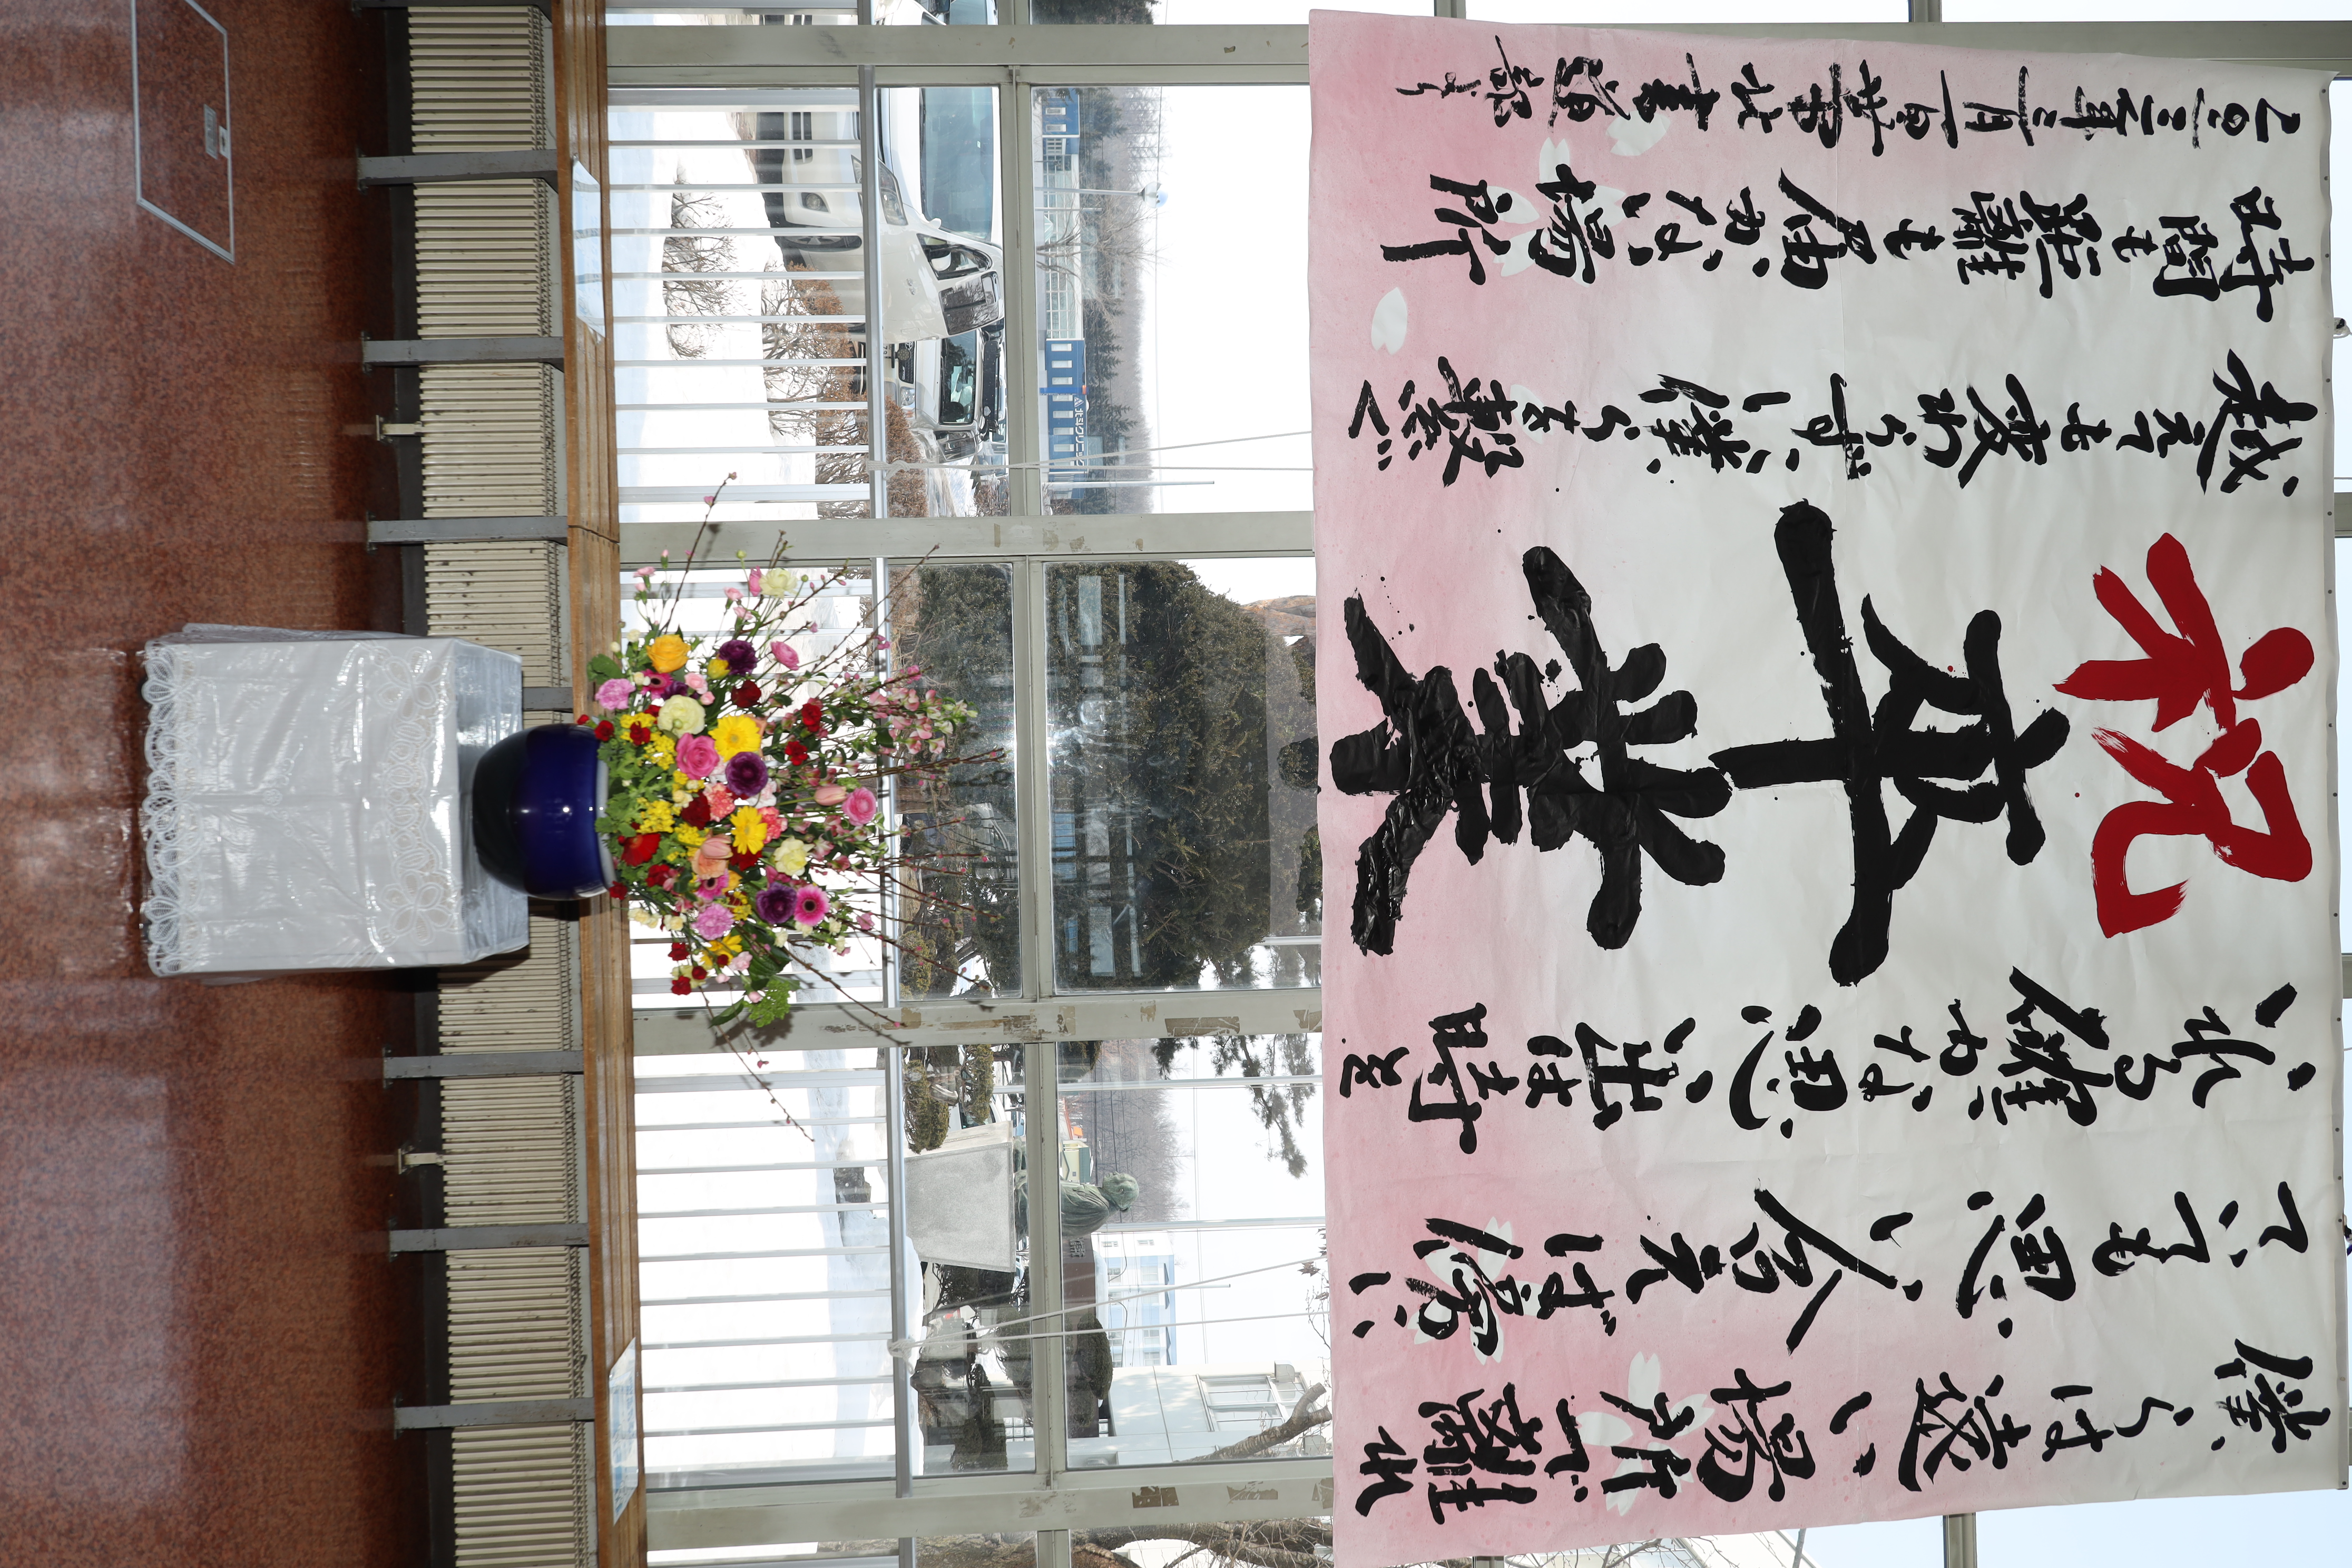 僕らは遠い場所で離れ
ていても思い合えば傍に
いれる確かな思い出は時を
祝卒業
越えても変わらず僕らを繋ぐ
時間も距離も届かない場所
二〇二三年三月一日 書道部